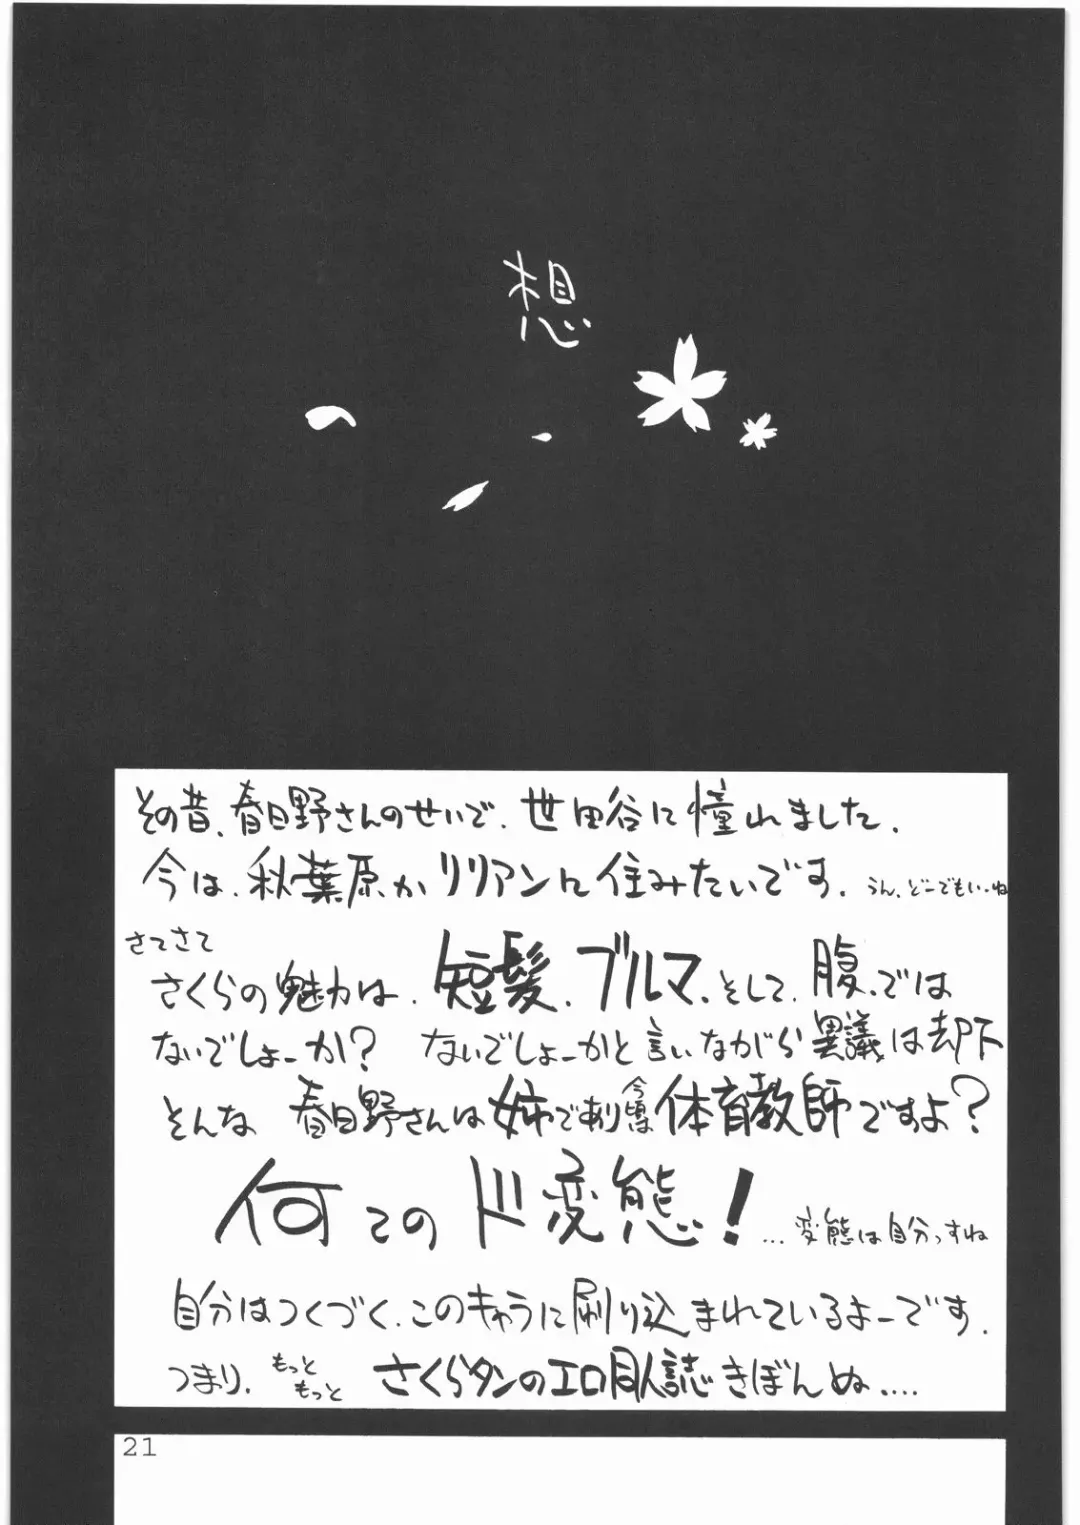 想
その昔、春日野さんのせいで、世田谷に憧れました。
今は、秋葉原かリリアンに住みたいです。うん、どーでもいーね
さてさて
さくらの魅力は、短髪、ブルマ、そして、腹、では
ないでしょーか? ないでしょーかと言いながら異議は却下
そんな 春日野さんは姉であり今頃は体育教師ですよ?
何てのド変態!…変態は自分っすね
自分はつくづく、このキャラに刷り込まれているよーです。
つまり、もっともっと さくらタンのエロ同人誌きぼんぬ....
21